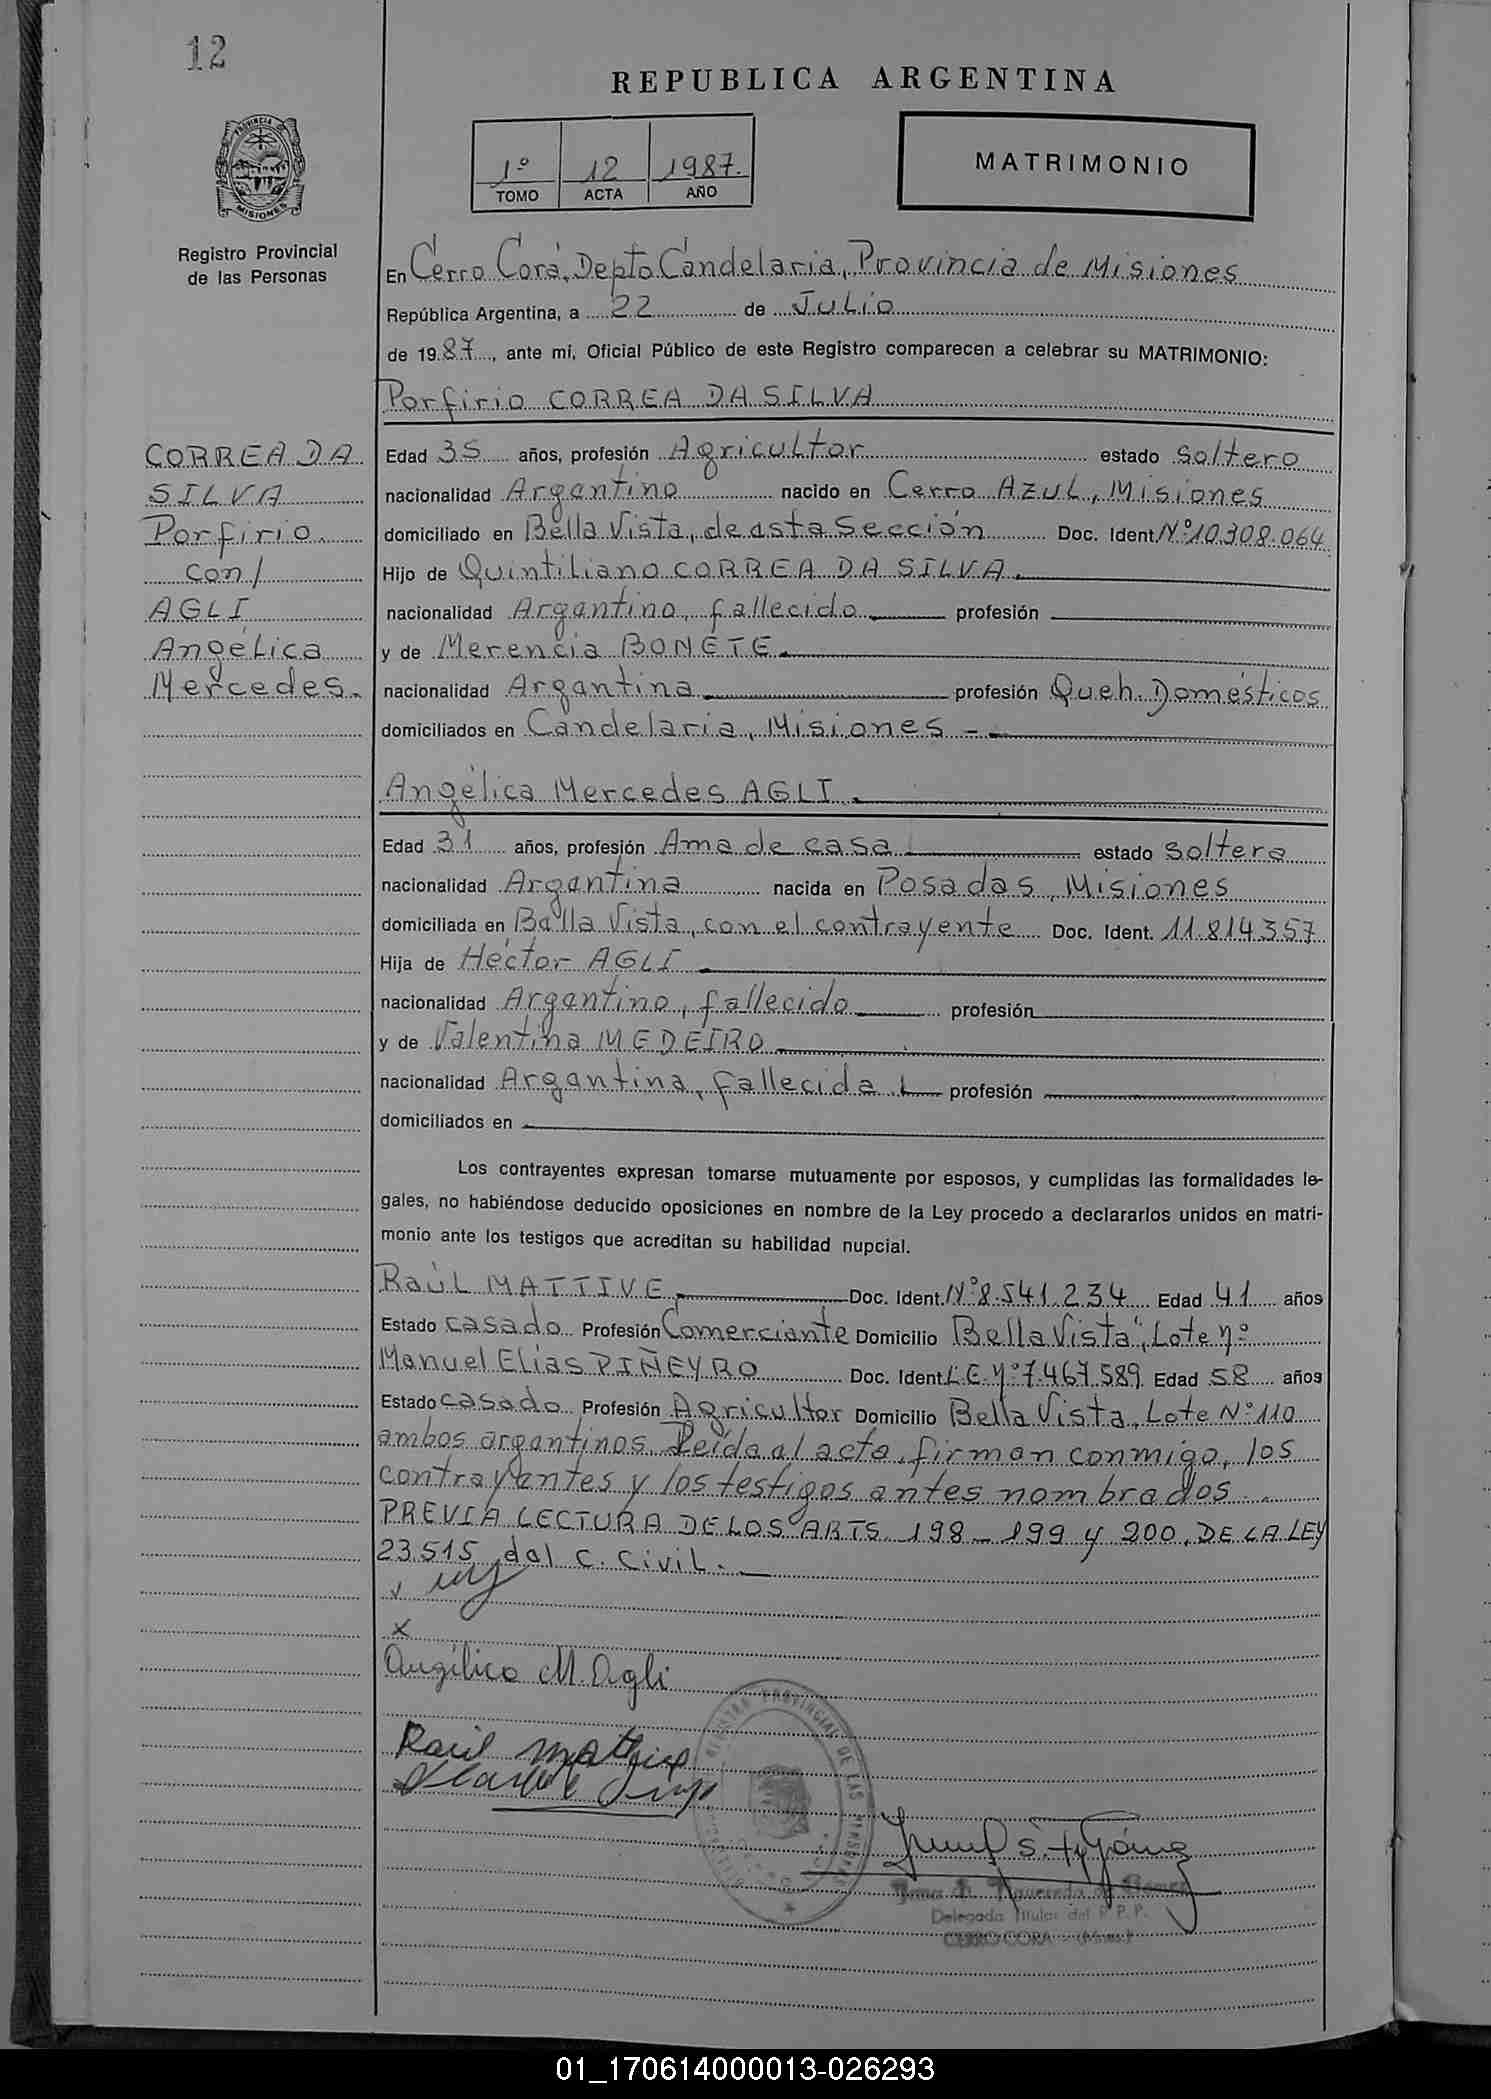 12
REPUBLICA ARGENTINA
1º 12 1987.
TOMO ACTA AÑO
MATRIMONIO
PROVINCIA DE
MISIONES
Registro Provincial
de las Personas
En Cerro Corá, Depto Candelaria, Provincia de Misiones
República Argentina, a 22 de Julio
de 1987, ante mi, Oficial Público de este Registro comparecen a celebrar su MATRIMONIO:
Porfirio CORREA DA SILVA
CORREA DA
SILVA
Porfirio
con/
AGLI
Angélica
Mercedes.
Edad 35 años, profesión Agricultor estado soltero
nacionalidad Argentino nacido en Cerro Azul, Misiones
domiciliado en Bella Vista, de esta Sección Doc. Ident. Nº 10.308.064
Hijo de Quintiliano CORREA DA SILVA.
nacionalidad Argentino, fallecido profesión
y de Merencia BONETE.
nacionalidad Argentina profesión Queh. Domésticos
domiciliados en Candelaria, Misiones -
Angélica Mercedes AGLI.
Edad 31 años, profesión Ama de casa estado soltera
nacionalidad Argentina nacida en Posadas, Misiones
domiciliada en Bella Vista, con el contrayente Doc. Ident. 11.814.357
Hija de Héctor AGLI
nacionalidad Argentino, fallecido profesión
y de Valentina MEDEIRO
nacionalidad Argentina, fallecida profesión
domiciliados en
Los contrayentes expresan tomarse mutuamente por esposos, y cumplidas las formalidades le-
gales, no habiéndose deducido oposiciones en nombre de la Ley procedo a declararlos unidos en matri-
monio ante los testigos que acreditan su habilidad nupcial.
Raúl MATTIVE, Doc. Ident. Nº 8.541.234 Edad 41 años
Estado casado Profesión Comerciante Domicilio Bella Vista", Lote nº
Manuel Elías PIÑEYRO Doc. Ident. L.E. Nº 7.467.589 Edad 58 años
Estado casado Profesión Agricultor Domicilio Bella Vista, Lote Nº 110
ambos argentinos. Leída el acta, firman conmigo, los
contrayentes y los testigos antes nombrados.
PREVIA LECTURA DE LOS ARTS. 198 - 199 y 200, DE LA LEY
23.515 del C. Civil.
x
Angélica M. Agli
Raúl Mattive
REGISTRO PROVINCIAL DE LAS PERSONAS
Figueredo de Gómez
Delegada Titular del R. P. P.
CERRO CORA - (Mnes.)
01_170614000013-026293